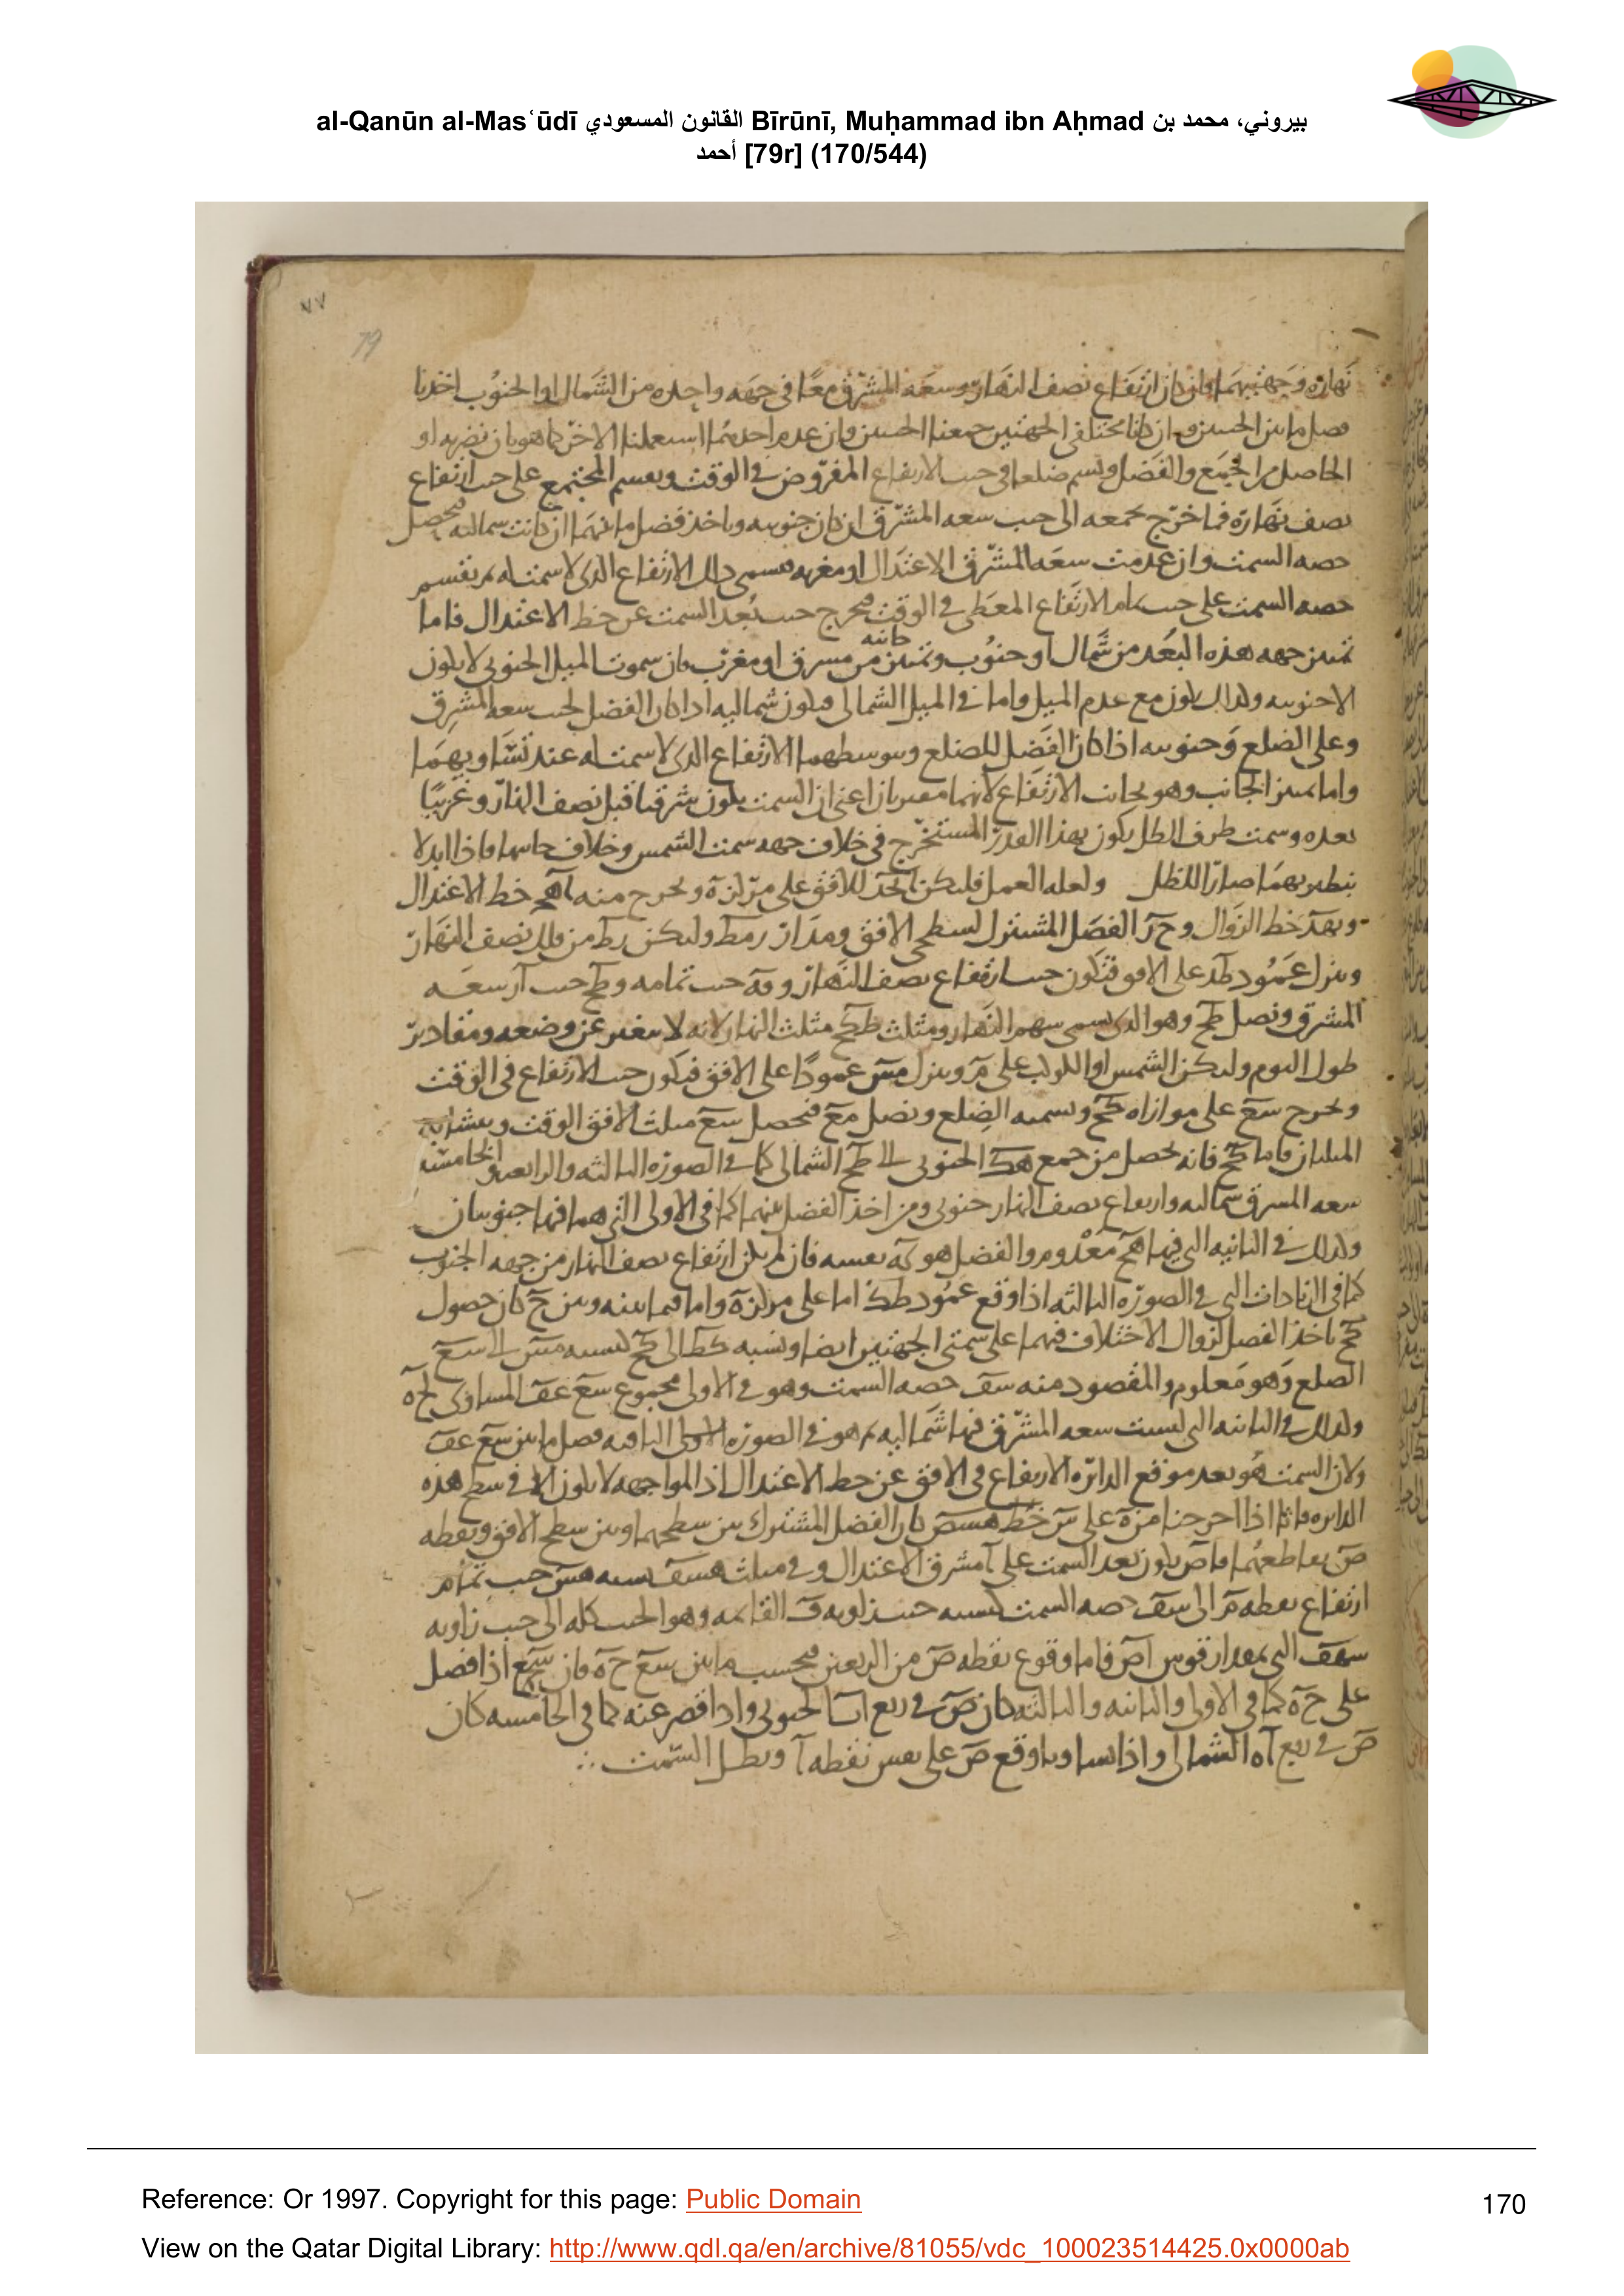 al-Qanūn al-Masʿūdī القانون المسعودي Bīrūnī, Muḥammad ibn Aḥmad بيروني، محمد بن
أحمد [79r] (170/544)
٧٧
79
نهاره وجهتيهما وان كان ارتفاع نصف النهار وسعه المشرق معا في جهه واحده من الشمال او الجنوب اخذنا
فصل ما بين الجيبين وان كانا مختلفي الجهتين جمعنا الجيبين وان عدم احدهما استعملنا الاخر كما هو بان نضربه او
الحاصل من الجمع والفضل ويسم ضلعا في جيب الارتفاع المفروض في الوقت ونقسم المجتمع على جيب ارتفاع
نصف نهاره فما خرج نجمعه الى جيب سعه المشرق ان كان جنوبيه وناخذ فضل ما بينهما ان كانت شماليه فيحصل
حصه السمت وان عدمت سعه المشرق الاعتدال او مغربه فسمى ذلك الارتفاع الذي لا سمت له ثم نقسم
حصه السمت على جيب تمام الارتفاع المعطى في الوقت فيخرج جيب بعد السمت عن خط الاعتدال فاما
تبين جهه هذه البعد من شمال او جنوب وتبين جانبه من مشرق او مغرب فان سموت الميل الجنوبي لا يكون
الا جنوبيه وكذلك يكون مع عدم الميل واما في الميل الشمالي فيكون شماليه اذا كان الفضل لجيب سعه المشرق
وعلى الضلع وجنوبيه اذا كان الفضل للضلع ويتوسطهما الارتفاع الذي لا سمت له عند تساويهما
واما تبين الجانب وهو بجانب الارتفاع لانهما مقتربان اعني ان السمت يكون شرقيا قبل نصف النهار وغربيا
بعده وسمت طرف الظل يكون بهذا القدر المستخرج في خلاف جهه سمت الشمس وخلاف جانبها فاذا ابدلا
بنظيريهما صارا للظل ولعله العمل فليكن ا ب ج د للافق على مركز ه ونخرج منه ا ه ج خط الاعتدال
و ب ه د خط الزوال و ح ر الفضل المشترك لسطحي الافق ومدار ر م ط وليكن ب ط من فلك نصف النهار
وننزل عمود ط ك على الافق فتكون جيب ارتفاع نصف النهار و ه ك جيب تمامه و ه ح جيب ا ر سعه
المشرق ونصل ط ح وهو الذي يسمى سهم النهار ومثلث ط ك ح مثلث النهار لانه لا يتغير عن وضعه ومقادير
طول اليوم وليكن الشمس او الكوكب على م وننزل م س عمودا على الافق فيكون جيب الارتفاع في الوقت
ونخرج س ع على موازاه ك ح ونسميه الضلع ونصل م ع فيحصل س ع مثلث الافق الوقت ويتشابه
المثلثان فاما ك ح فانه يحصل من جمع ه ك الجنوبي الى ه ح الشمالي كما في الصوره الثالثه والرابعه والخامسه
سعه المشرق شماليه وارتفاع نصف النهار جنوبي ومن اخذ الفضل بينهما كما في الاولى التي هما فيها جنوبيان
وكذلك في الثانيه التي فيها ه ح معدوم والفضل هو ك ه بعينه فان لم يكن ارتفاع نصف النهار من جهه الجنوب
كما في الثلاث التي في الصوره الثالثه اذا وقع عمود ط ك اما على مركز ه واما فيما بينه وبين ح كان حصول
ك ح باخذ الفضل لزوال الاختلاف فيهما على سمتي الجهتين ايضا ونسبه ك ط الى ك ح كنسبه م س الى س ع
الضلع وهو معلوم والمقصود منه س ف حصه السمت وهو في الاولى مجموع س ع ع ف المساوي ل ح ه
وكذلك في الثانيه التي ليست سعه المشرق فيها شماليه ثم هو في الصوره الباقيه فصل ما بين س ع ع ف
ولان السمت هو بعد موقع الدائره الارتفاع في الافق عن خط الاعتدال اذ المواجهه لا يكون الا في سطح هذه
الدائره فانا اذا اخرجنا من ه على س خط ه س ص كان الفضل المشترك بين سطحهما وبين سطح الافق ونقطه
ص تقاطعهما فا ص يكون بعد السمت على ا مشرق الاعتدال وفي مثلث ه س ف نسبه ه س جيب تمام
ارتفاع نقطه م الى س ف حصه السمت كنسبه جيب زاويه ف القائمه وهو الجيب كله الى جيب زاويه
س ه ف التي بمقدار قوس ا ص فاما وقوع نقطه ص من الربعين فبحسب ما بين س ع ح ه فان س ع اذا فضل
على ح ه كما في الاولى والثانيه والثالثه كان ص في ربع ا ب الجنوبي واذا قصر عنه كما في الخامسه كان
ص في ربع ا د الشمالي واذا تساويا وقع ص على نفس نقطه ا وبطل السمت
Reference: Or 1997. Copyright for this page: Public Domain
170
View on the Qatar Digital Library: http://www.qdl.qa/en/archive/81055/vdc_100023514425.0x0000ab